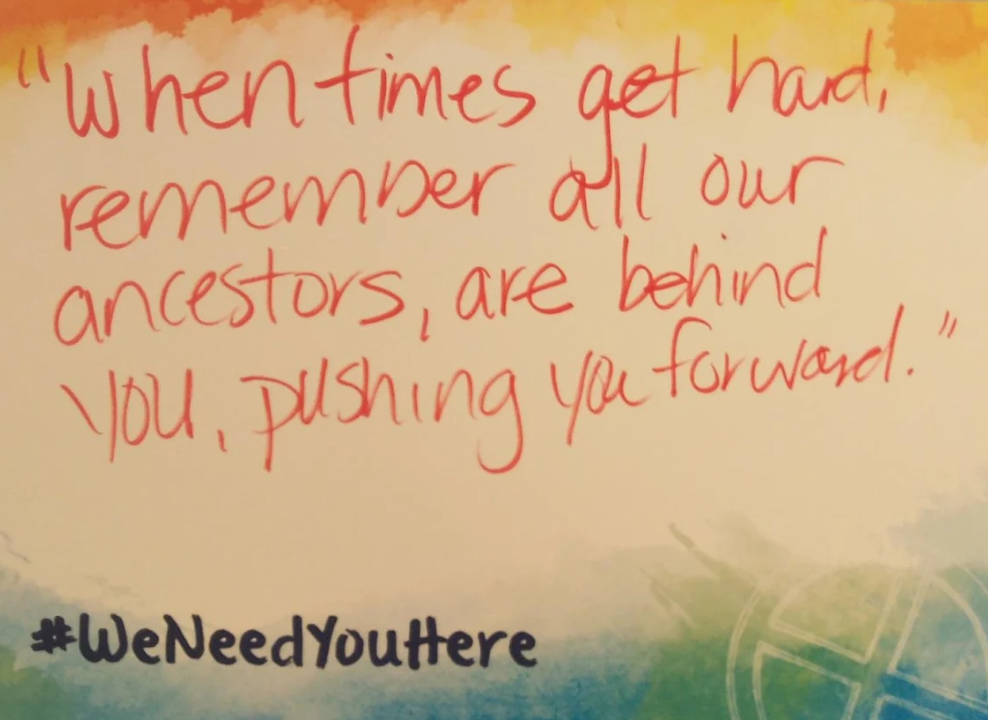 "When times get hard,
remember all our
ancestors, are behind
you, pushing you forward."
#WeNeedYouHere